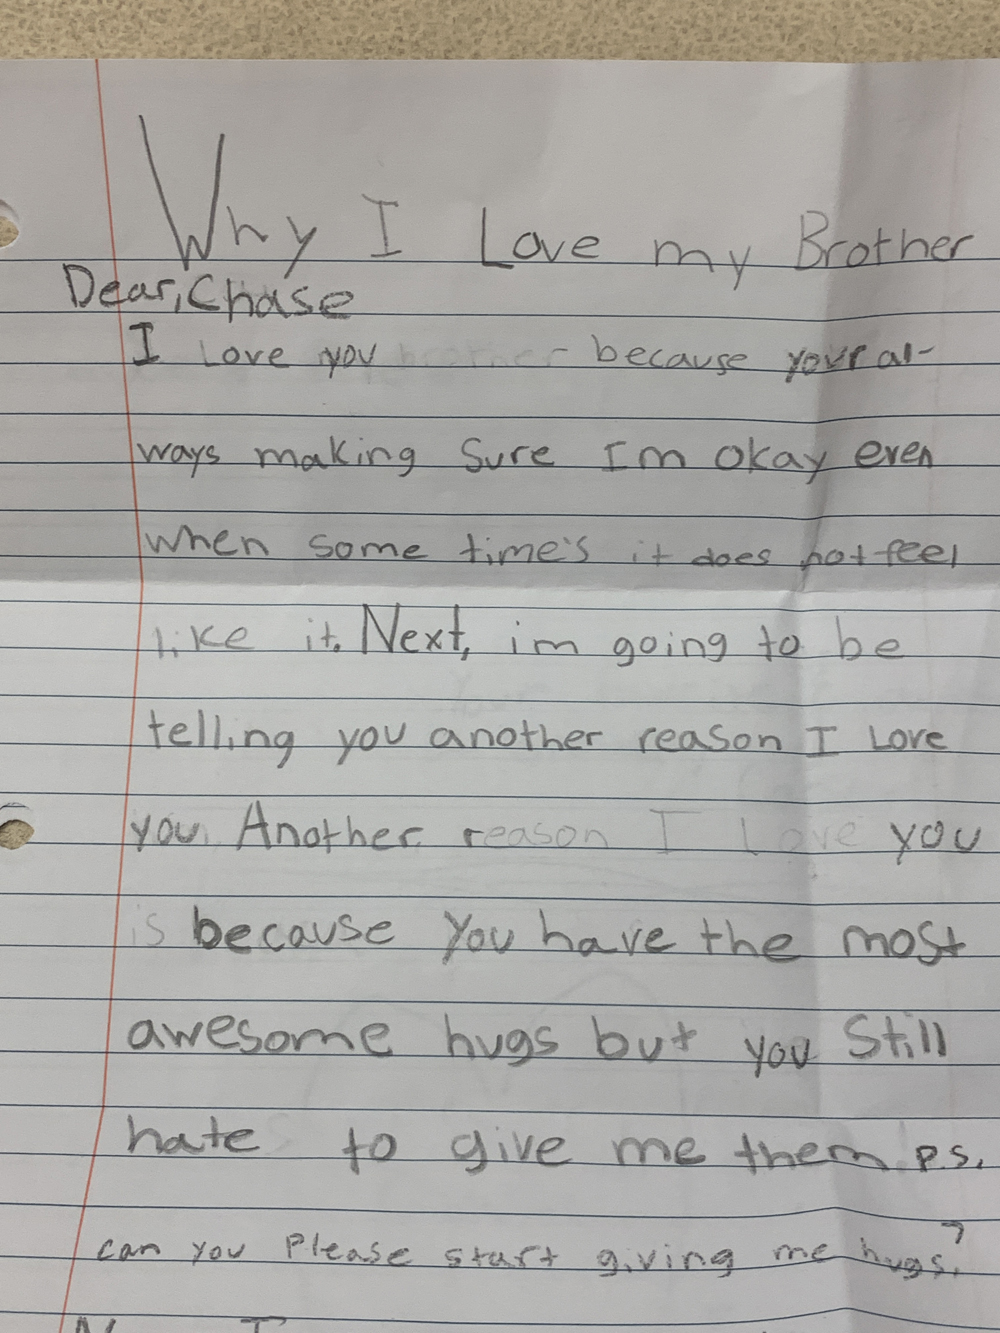 Why I Love my Brother
Dear, Chase
I Love you brother because your al-
ways making Sure I'm okay even
when some time's it does not feel
like it. Next, im going to be
telling you another reason I Love
you. Another reason I Love you
is because you have the most
awesome hugs but you Still
hate to give me them P.S.
can you Please start giving me hugs?